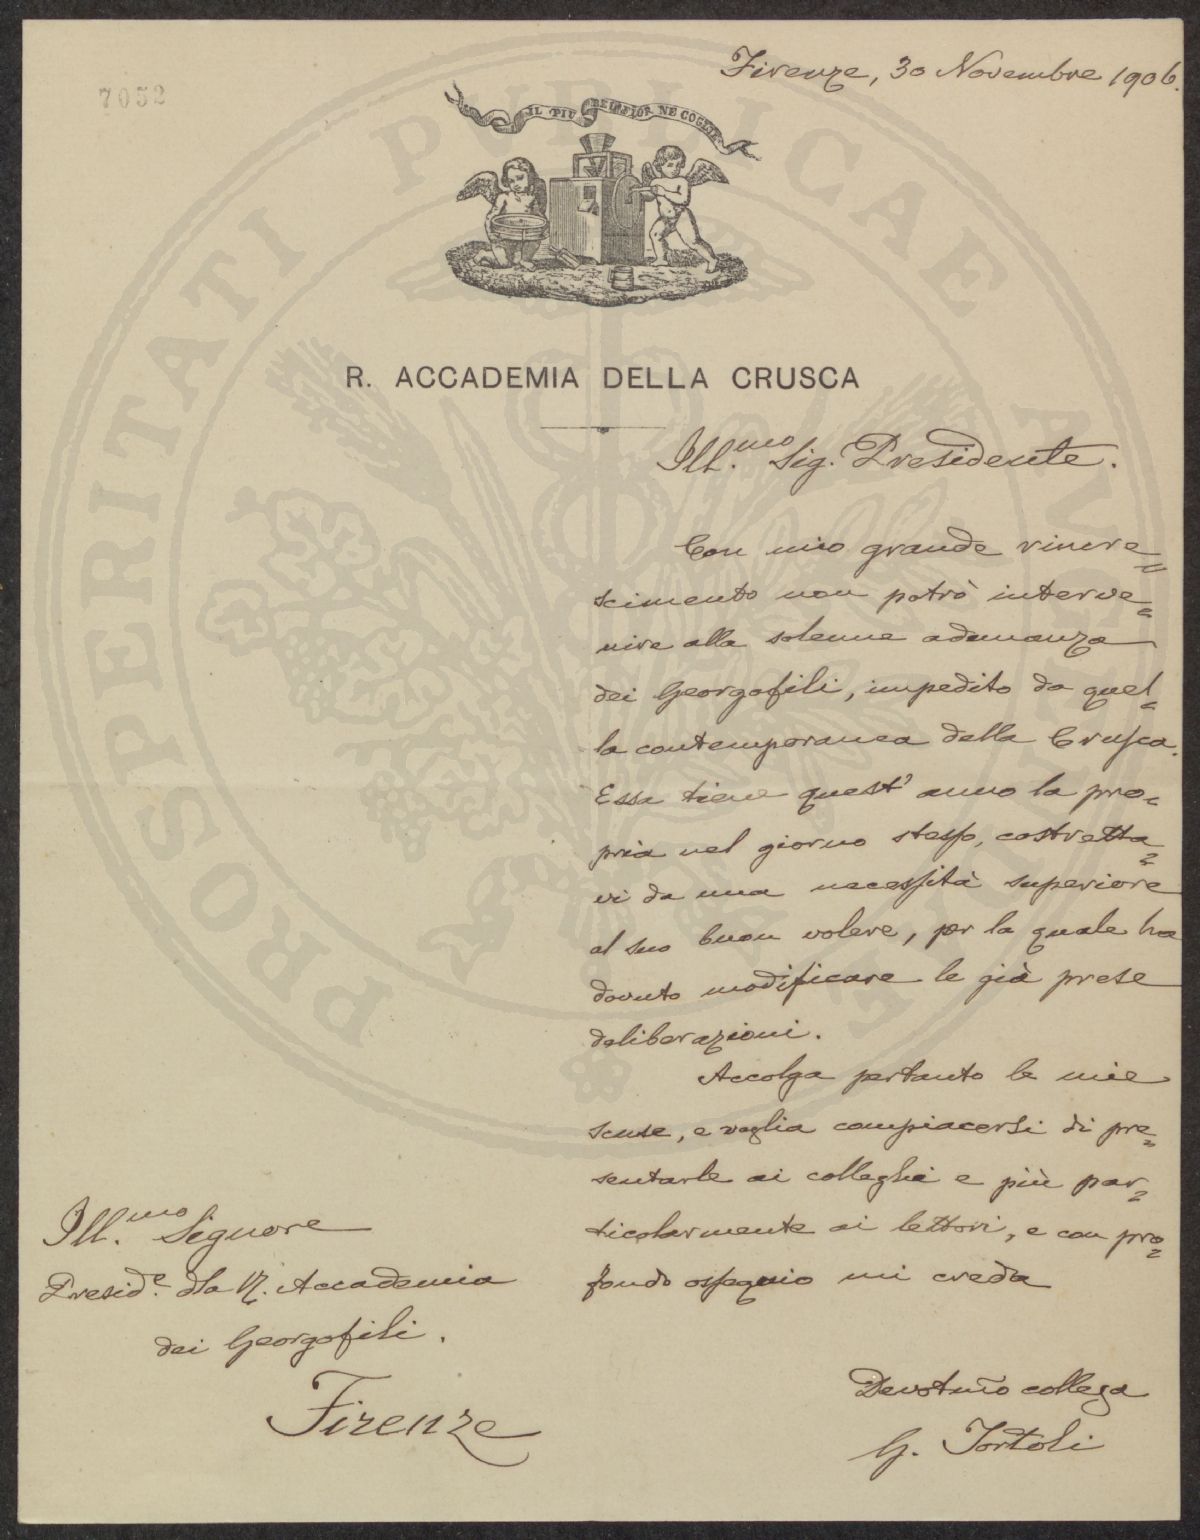 7052
Firenze, 30 Novembre 1906.
IL PIÙ BEL FIOR NE COGLIE
R. ACCADEMIA DELLA CRUSCA
Ill.mo Sig. Presidente.
Con mio grande rincre=
scimento non potrò interve=
nire alla solenne adunanza
dei Georgofili, impedito da quel=
la contemporanea della Crusca.
Essa tiene quest' anno la pro=
pria nel giorno stesso, costretta=
vi da una necessità superiore
al suo buon volere, per la quale ha
dovuto modificare le già prese
deliberazioni.
Accolga pertanto le mie
scuse, e voglia compiacersi di pre=
sentarle ai colleghi e più par=
ticolarmente ai lettori, e con pro=
fondo ossequio mi creda
Devotmo collega
G. Tortoli
Ill.mo Signore
Preside. dla R. Accademia
dei Georgofili.
Firenze
PROSPERITATI PUBLICAE AUGENDAE